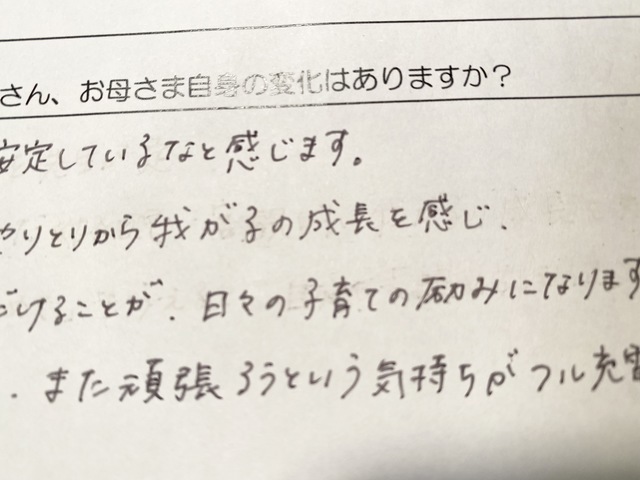 さん、お母さま自身の変化はありますか?
安定しているなと感じます。
やりとりから我が子の成長を感じ、
けることが、日々の子育ての励みになります
、また頑張ろうという気持ちがフル充電